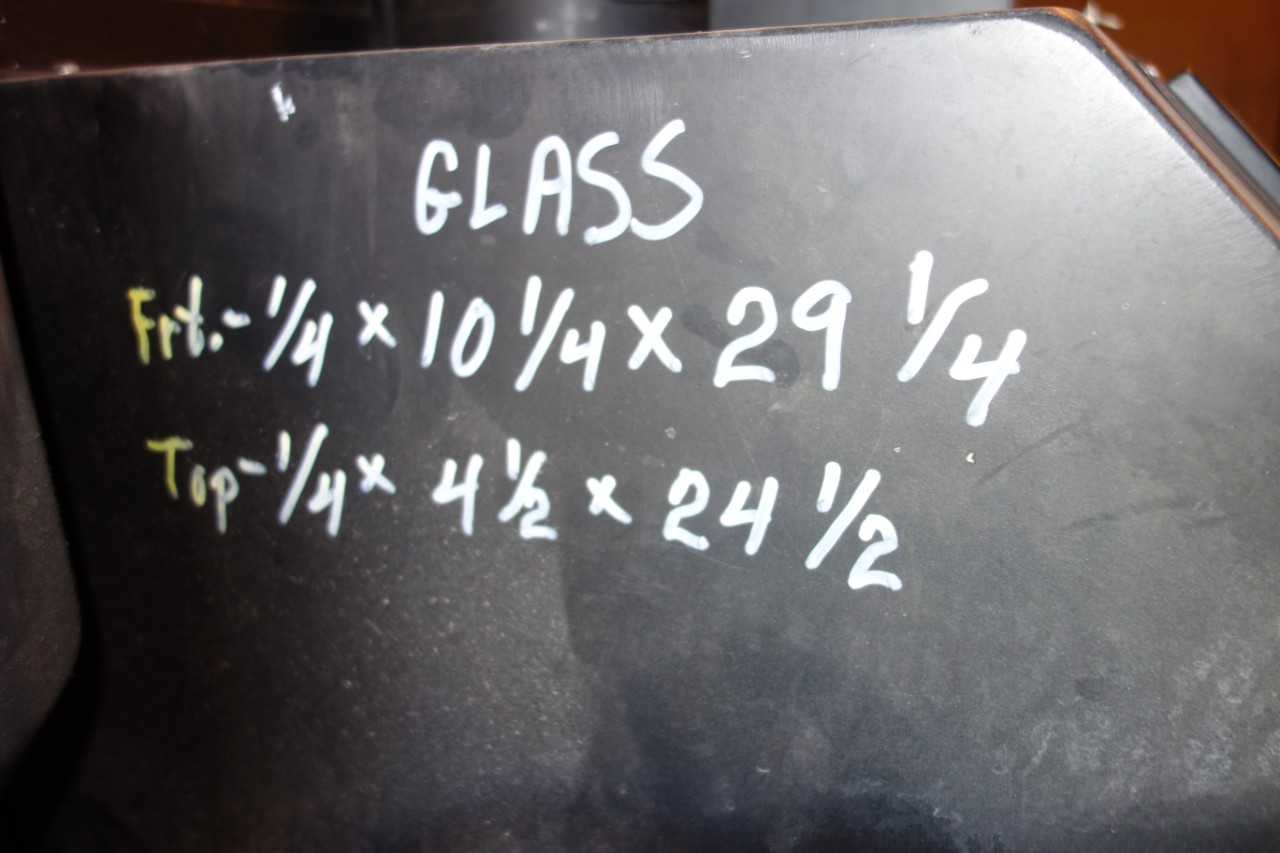 GLASS
Frt.- 1/4 x 10 1/4 x 29 1/4
Top- 1/4 x 4 1/2 x 24 1/2